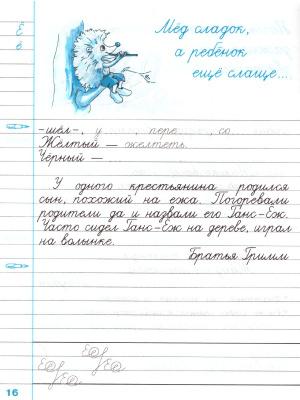 Ё
ё
Мёд сладок,
а ребёнок
ещё слаще...
-шёл-, у....., пере....., со
Жёлтый — желтеть.
Чёрный — ...
У одного крестьянина родился
сын, похожий на ежа. Погоревали
родители да и назвали его Ганс-Ёж.
Часто сидел Ганс-Ёж на дереве, играл
на волынке.
Братья Гримм
16